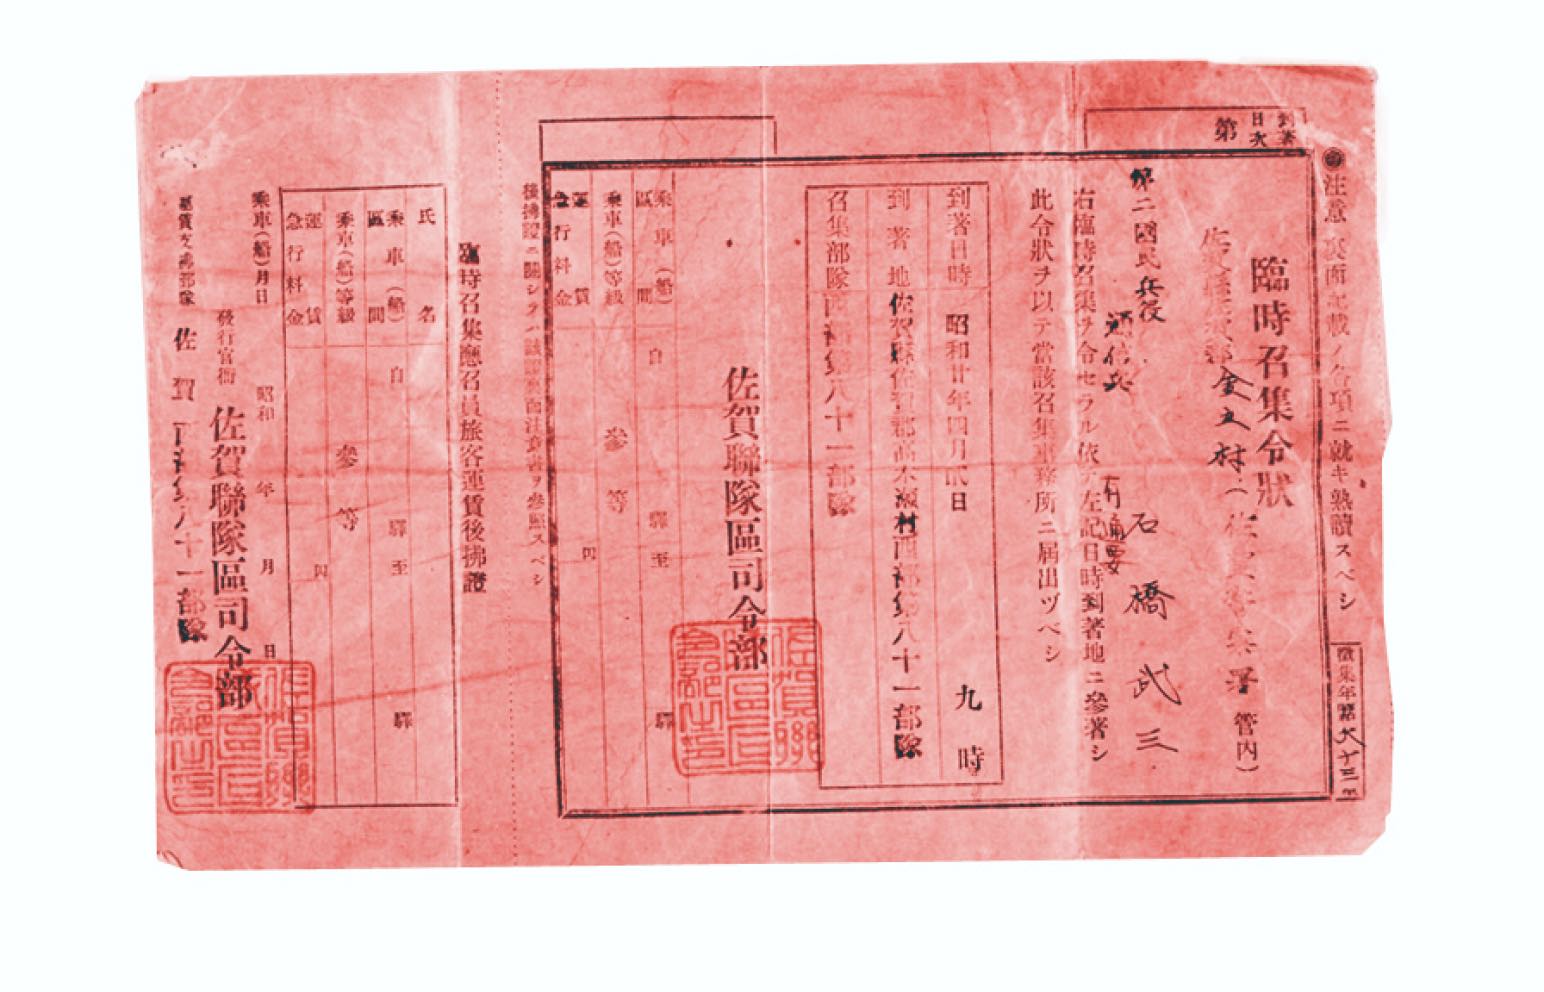 ●注意 裏面記載ノ各項ニ就キ熟讀スベシ
到著
日次
第
臨時召集令狀
佐賀縣佐賀郡金立村(佐賀警察署管内)
第二國民兵役
通信兵
石橋武三
右臨時召集ヲ令セラル依テ左記日時到著地ニ參著シ
此令狀ヲ以テ當該召集事務所ニ屆出ヅベシ
到著日時 昭和廿年四月貳日 九時
到著地 佐賀縣佐賀郡高木瀬村西部第八十一部隊
召集部隊 西部第八十一部隊
佐賀聯隊區司令部
乘車(船)區間 自 驛至 驛
乘車(船)等級 參等
運賃
急行料金 円
臨時召集應召員旅客運賃後拂證
氏名
乘車(船)區間 自 驛至 驛
乘車(船)等級 參等
運賃
急行料金 円
乘車(船)月日 昭和 年 月 日
發行官衙 佐賀聯隊區司令部
佐賀 西部第八十一部隊